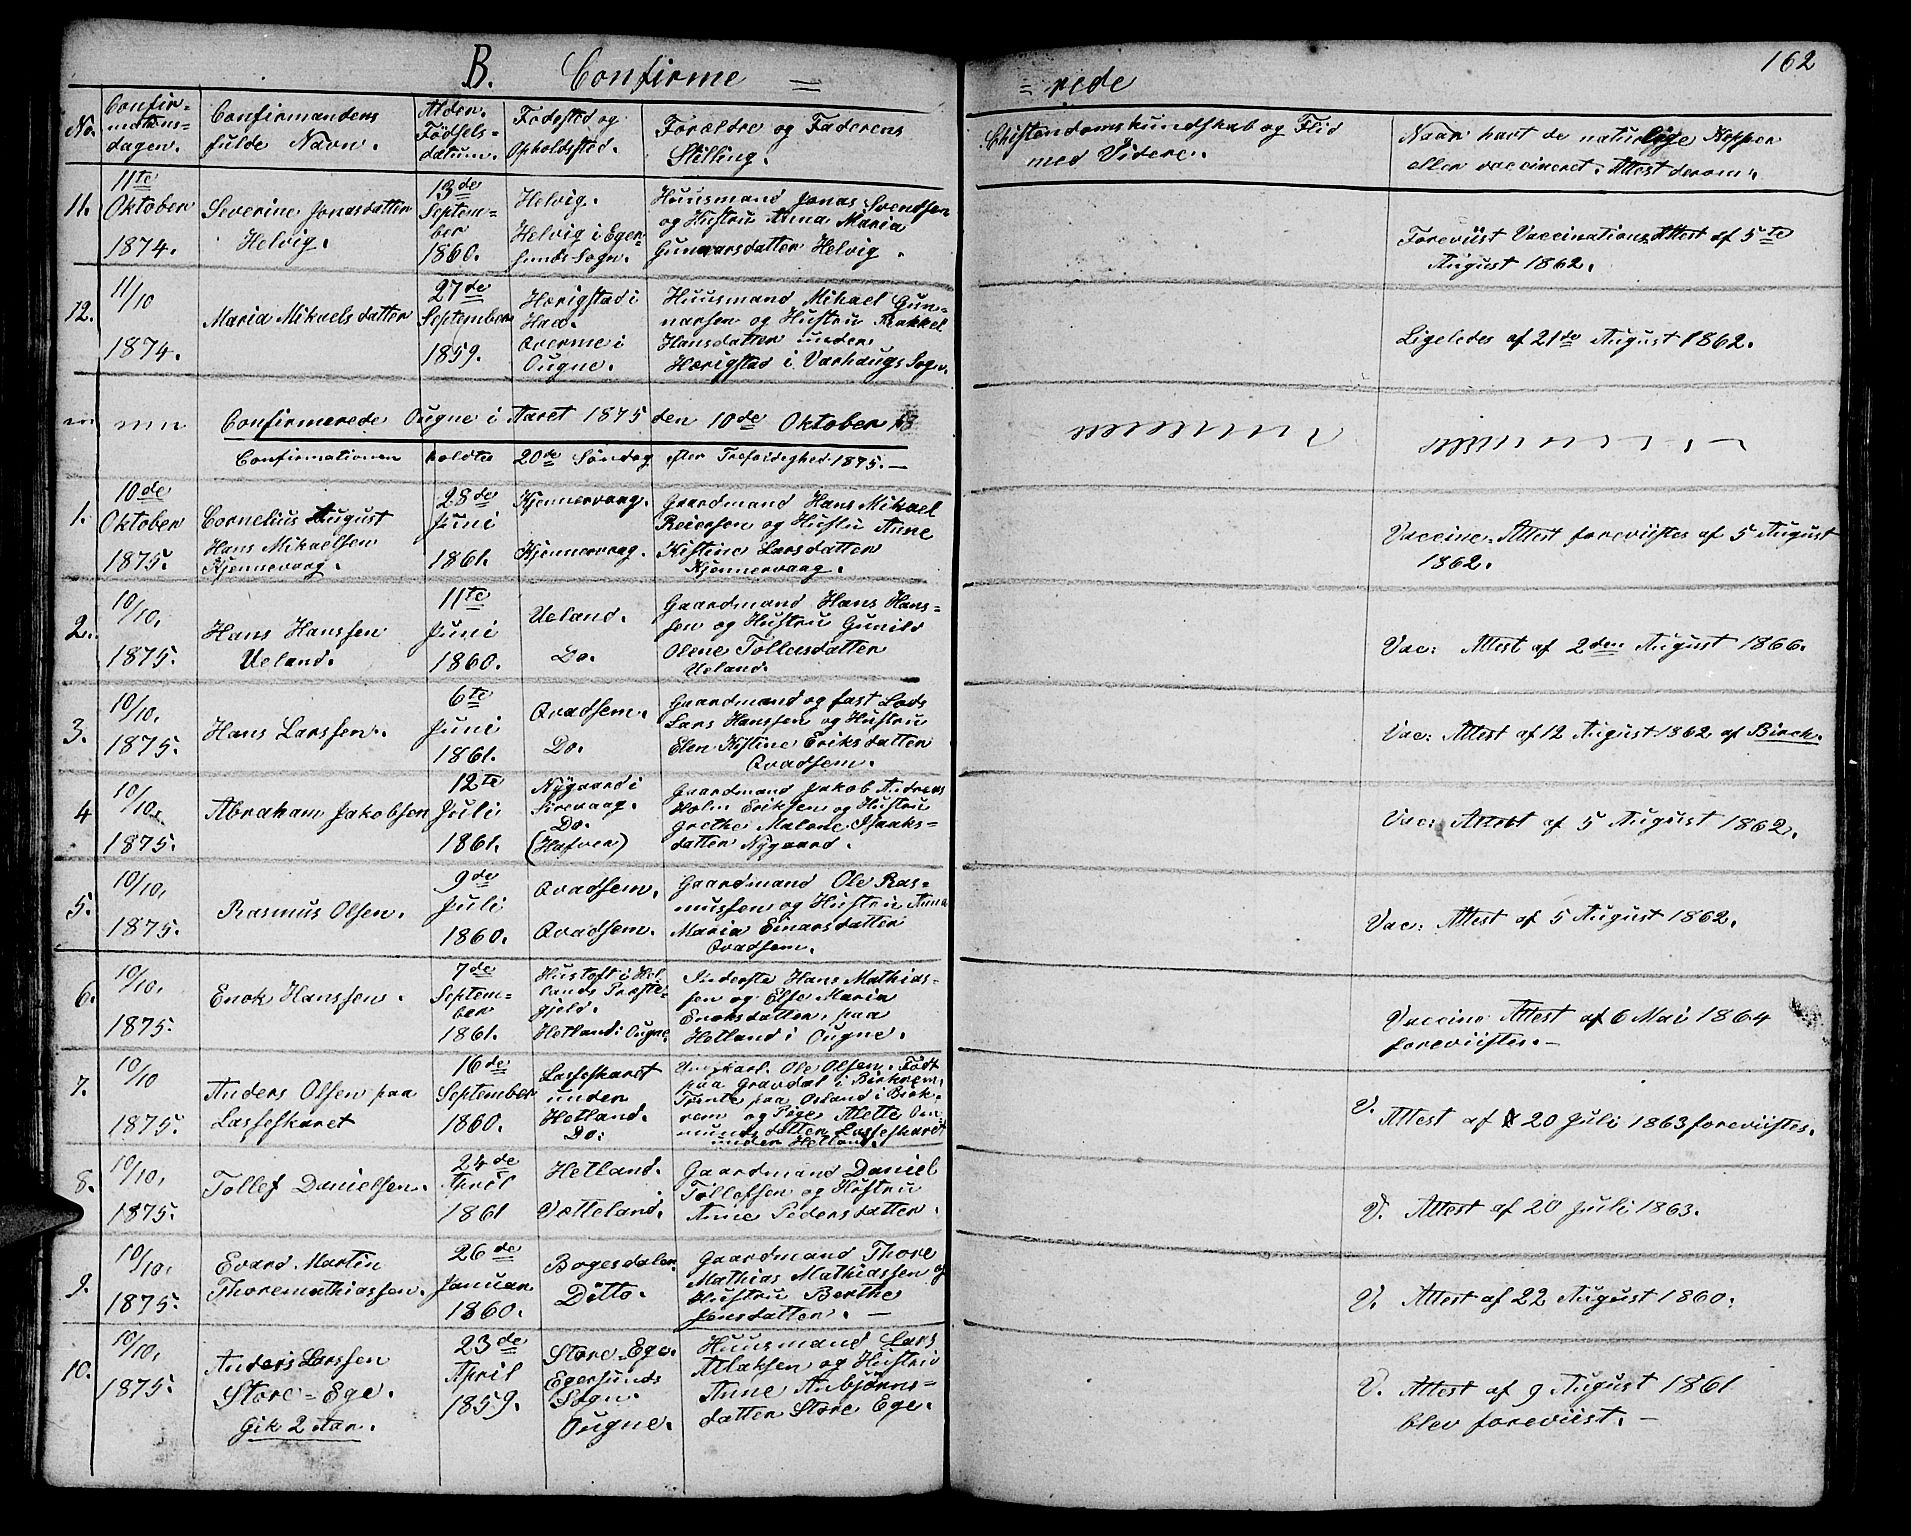 B. Confirme =
= rede
162
No.
Confir=
mations=
dagen.
Confirmandens
fulde Navn.
Alder.
Fødsels=
datum.
Fødested og
Opholdsted.
Forældre og Faderens
Stilling.
Christendomskundskab og Flid
med Videre.
Naar havt de naturlige Kopper
eller vaccineret. Attest derom.
11.
11te
Oktober
1874.
Severine Jonasdatter
Helvig.
13de
Septem=
ber
1860.
Helvig.
Helvig i Eger=
sunds Sogn.
Huusmand Jonas Svendsen
og Hustru Anna Maria
Gunnarsdatter Helvig.
Foreviist Vaccinations Attest af 5te
August 1862.
12.
11/10
1874.
Maria Mikaelsdatter
27de
September
1859.
Hærigstad i
Haa.
Qverme i
Ougne.
Huusmand Mikael Gun=
narsen og Hustru Rakkel
Hansdatter under
Hærigstad i Varhaugs Sogn.
Ligeledes af 21de August 1862.
Confirmerede Ougne i Aaret 1875 den 10de Oktober
Confirmationen holdtes 20de Søndag efter Trefoldighed 1875. —
1.
10de
Oktober
1875.
Cornelius August
Hans Mikaelsen
Kjennevaag.
28de
Juni
1861.
Kjennervaag.
Kjennervaag.
Gaardmand Hans Mikael
Reiersen og Hustru Anne
Kistine Larsdatter
Kjønnervaag.
Vaccine. Attest foreviistes af 5 August
1862.
2.
10/10.
1875.
Hans Hanssen
Ueland.
11te
Juni
1860.
Ueland.
Do.
Gaardmand Hans Hans=
sen og Hustru Gunild
Olene Tollasdatter
Ueland.
Vac: Attest af 2den August 1866.
3.
10/10.
1875.
Hans Larssen.
6te
Juni
1861.
Qvadsem.
Do.
Gaardmand og fast Lods
Lars Hanssen og Hustru
Elen Kistine Eriksdatter
Qvadsem.
Vac: Attest af 12 August 1862 af Birch.
4
10/10.
1875.
Abraham Jakobsen
12te
Juli
1861.
Nygaard i
Sirevaag.
Do.
(Hafven)
Gaardmand Jakob Andreas
Holm Eriksen og Hustru
Grethe Malene Isaaks=
datter Nygaard.
Vac: Attest af 5 August 1862.
5.
10/10.
1875.
Rasmus Olsen.
9de
Juli
1860.
Qvadsem.
Qvadsem.
Gaardmand Ole Ras=
mussen og Hustru Anna
Maria Einarsdatter
Qvadsem.
Vac: Attest af 5 August 1862.
6.
10/10.
1875.
Enok Hanssen.
7de
Septem=
ber
1861.
Hustoft i Hel=
lands Præste=
gjeld.
Hetland i Ougne.
Inderste Hans Mathias=
sen og Else Maria
Enoksdatter, paa
Hetland i Ougne.
Vaccine Attest af 6 Mai 1864
foreviistes. —
7.
10/10
1875.
Anders Olsen paa
Lassesskaret
16de
September
1860.
Lassesskaret
under
Hetland.
Do:
Ungkarl. Ole Olsen. Født
paa Gravdal i Birkrem.
Tjente paa Osland i Birk=
rem og Pige Alette Om=
mundsdatter Lassesskaret
under Hetland.
V. Attest af 20 Juli 1863 foreviistes.
8.
10/10.
1875.
Tollef Danielsen.
24de
April
1861
Hetland.
Vatteland.
Gaardmand Daniel
Tollefsen og Hustru
Anne Pedersdatter.
V. Attest af 20 Juli 1863.
9.
10/10.
1875.
Evard Martin
Thoremathiassen.
26de
Januar
1860.
Bogesdalen
Ditto.
Gaardmand Thore
Mathias Mathiassen og
Hustru Berthe
Jensdatter. —
V. Attest af 22 August 1860.
10.
10/10.
1875.
Anders Larssen
Store=Ege.
Gik 2 Aar.
23de
April
1859.
Store=Ege.
Egersunds
Sogn.
Ougne.
Huusmand Lars
Atlaksen og Hustru
Anne Anbjørns=
datter Store Ege.
V. Attest af 9 August 1861
blev foreviist. —